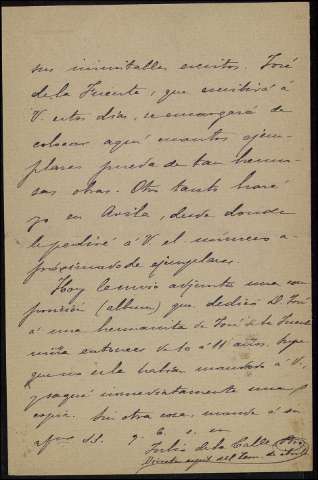 sus inimitables escritos. José
de la Fuente, que escribirá á
V. estos dias, se encargará de
colocar aquí cuantos ejem-
plares pueda de tan hermo-
sas obras. Otro tanto haré
yo en Avila, desde donde
le pediré á V. el número a-
proximado de ejemplares.
Hoy le envio adjunta una com
posición (album) que dedicó D. José
á una hermanita de José de la Fuente
niña entonces de 10 á 11 años. Supe
que no se la habian mandado á V. y
saqué inmediatamente una
copia. Sin otra cosa, mande á su
afmo. s.s. q. b. s. m
Julio de la Calle
Director espt. del